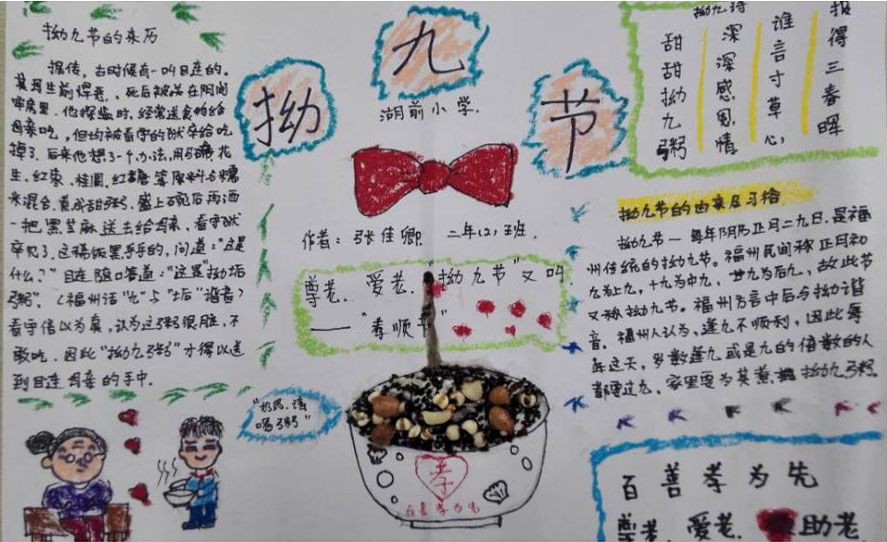 拗九节的来历
据传，古时候有一叫目连的。
其母生前悍恶，死后被关在阴间
牢房里.他探监时，经常送食物给
母亲吃，但均被看守的狱卒给吃
掉了.后来他想了一个办法，用花
生、红枣、桂圆、红糖等原料与糯
米混合，煮成甜粥，盛上碗后再洒
一把黑芝麻送去给母亲，看守狱
卒见了这稀饭黑乎乎的，问道："这是
什么？"目连随口答道："这是拗垢
粥"，（福州话"九"与"垢"谐音）
看守信以为真，认为这粥很脏，不
敢吃.因此"拗九粥"才得以送
到目连母亲的手中.
拗九节
湖前小学.
作者：张佳卿 二年(2)班.
尊老、爱老."拗九节"又叫
——"孝顺节"
"奶奶,请
喝粥"
孝
百善孝为先
拗九诗
甜甜拗九粥
深深感恩情
谁言寸草心
报得三春晖
拗九节的由来及习俗
拗九节一每年阴历正月二九日.是福
州传统的拗九节。福州民间称正月初
九为上九,十九为中九,廿九为后九,故此节
又称拗九节。福州方言中后与拗谐
音.福州人认为,逢九不顺利,因此每
年这天,岁数逢九或是九的倍数的人
都要过九.家里要为其煮拗九粥.
百善孝为先
尊老、爱老、助老